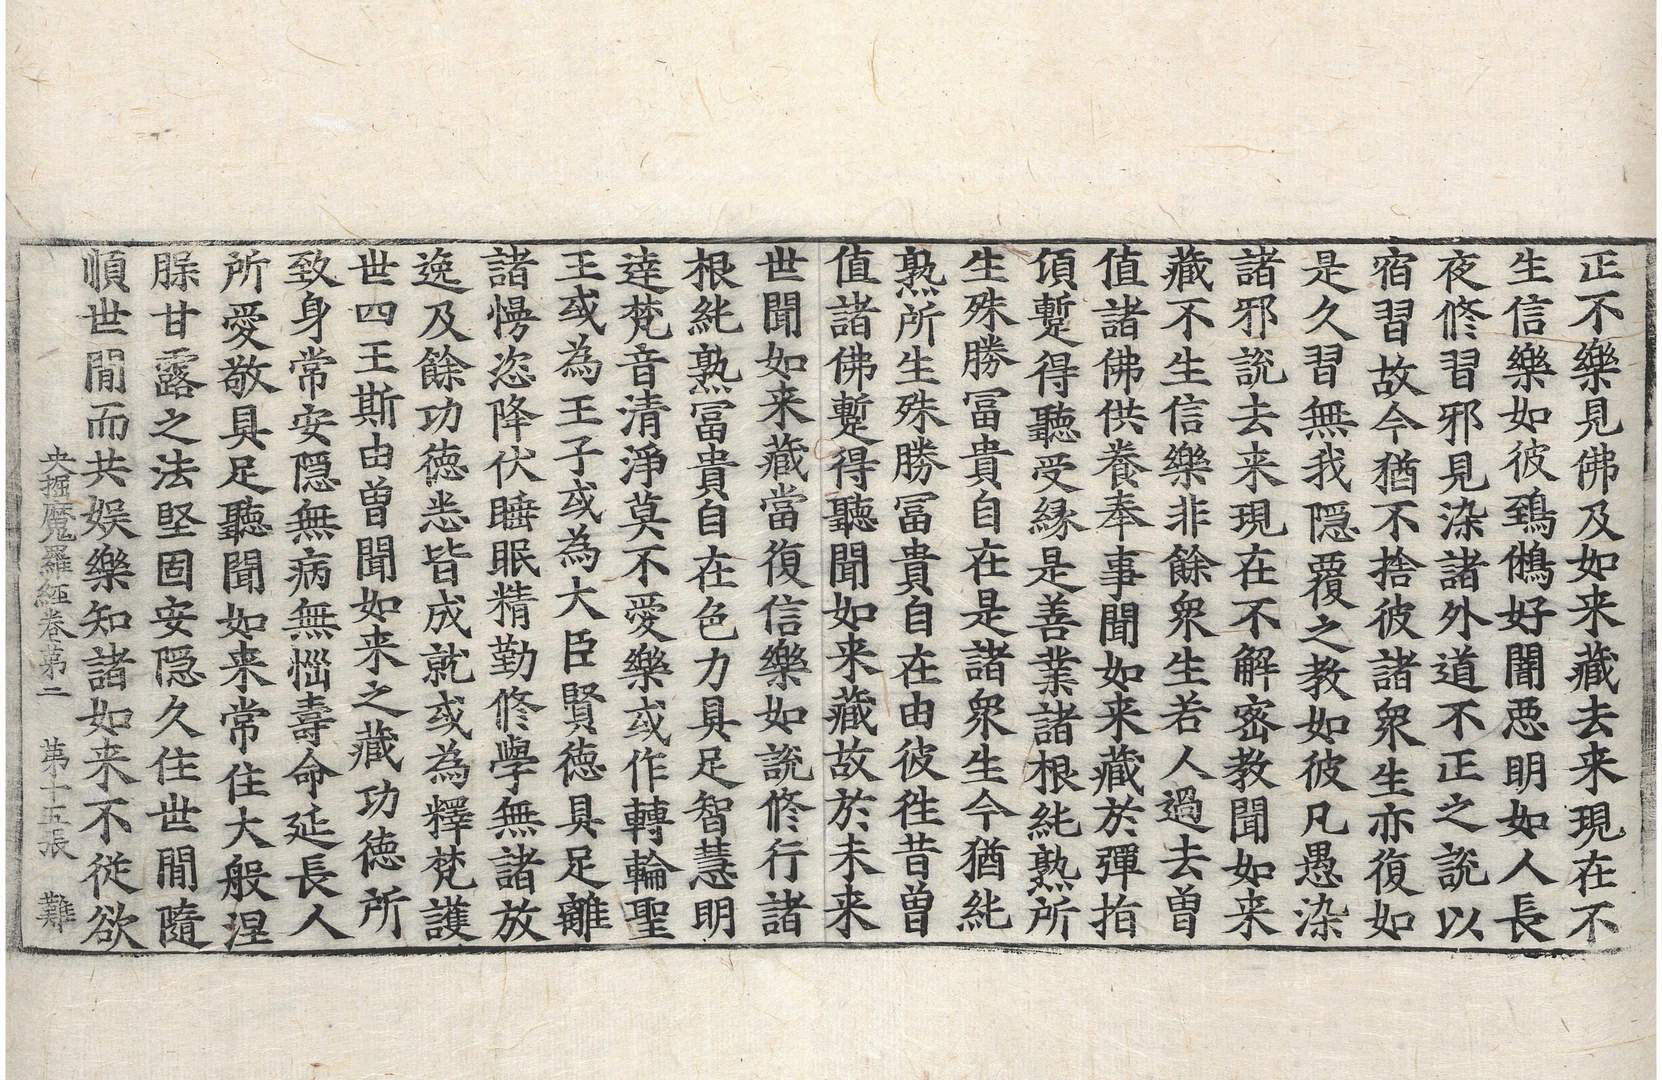 正不樂見佛及如来藏去来現在不
生信樂如彼鵄鵂好闇惡明如人長
夜修習邪見染諸外道不正之說以
宿習故今猶不捨彼諸衆生亦復如
是久習無我隱覆之教如彼凡愚染
諸邪說去来現在不解密教聞如来
藏不生信樂非餘衆生若人過去曾
值諸佛供養奉事聞如来藏於彈指
頃蹔得聽受緣是善業諸根純熟所
生殊勝富貴自在是諸衆生今猶純
熟所生殊勝富貴自在由彼徃昔曾
值諸佛蹔得聽聞如来藏故於未来
世聞如来藏當復信樂如說修行諸
根純熟富貴自在色力具足智慧明
達梵音清淨莫不愛樂或作轉輪聖
王或為王子或為大臣賢德具足離
諸慢恣降伏睡眠精勤修學無諸放
逸及餘功德悉皆成就或為釋梵護
世四王斯由曾聞如来之藏功德所
致身常安隱無病無惱壽命延長人
所愛敬具足聽聞如来常住大般涅
脲甘露之法堅固安隱久住世閒隨
順世閒而共娛樂知諸如来不從欲
央掘魔羅經卷第二　第十五張　難